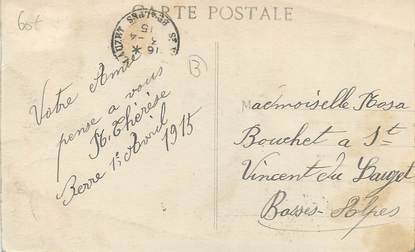 60st
CARTE POSTALE
LAUZET
BSES ALPES
16
3 -4
15
3
Votre Amie
pense a vous
M. Thérèse
Berre 1er Avril 1915
Mademoiselle Rosa
Bouchet a St
Vincent du Lauzet
Basses-Alpes